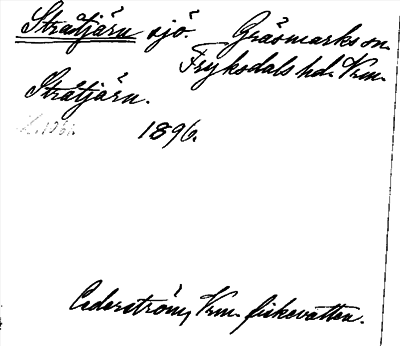 Stråtjärn sjö. Gräsmarks sn.
Fryksdals hd. Vrm.
Stråtjärn.
1896.
Cederström, Vrm. fiskevatten.